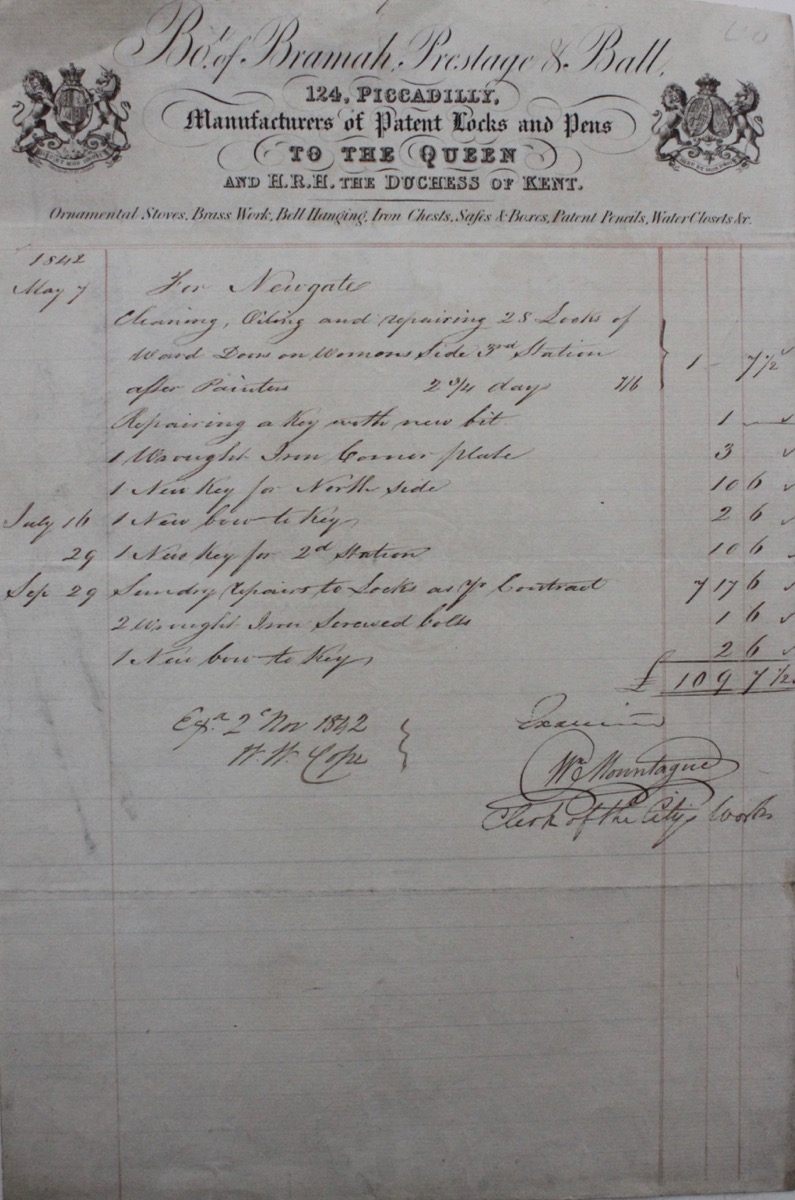 Bot. of Bramah, Prestage & Ball,
124, PICCADILLY,
Manufacturers of Patent Locks and Pens
TO THE QUEEN
AND H.R.H. THE DUCHESS OF KENT.
Ornamental Stoves, Brass Work, Bell Hanging, Iron Chests, Safes & Boxes, Patent Pencils, Water Closets &c.
1842
May 7 For Newgate
Cleaning, Oiling and repairing 28 Locks of
Ward Doors on Womens Side 3rd Station 1 - 7 1/2
after Painters 2 3/4 days 7/6
Repairing a Key with new bit 1 -
1 Wrought Iron Corner plate 3
1 New Key for North side 10 6
July 16 1 New bow to Key 2 6
29 1 New Key for 2d Station 10 6
Sep 29 Sundry repairs to Locks as pr Contract 7 17 6
2 Wrought Iron Screwed bolts 1 6
1 New bow to Key 2 6
£ 10 9 7 1/2
2 Nov 1842 Examined
W. W. Cope Wm Mountague
Clerk of the City's Works